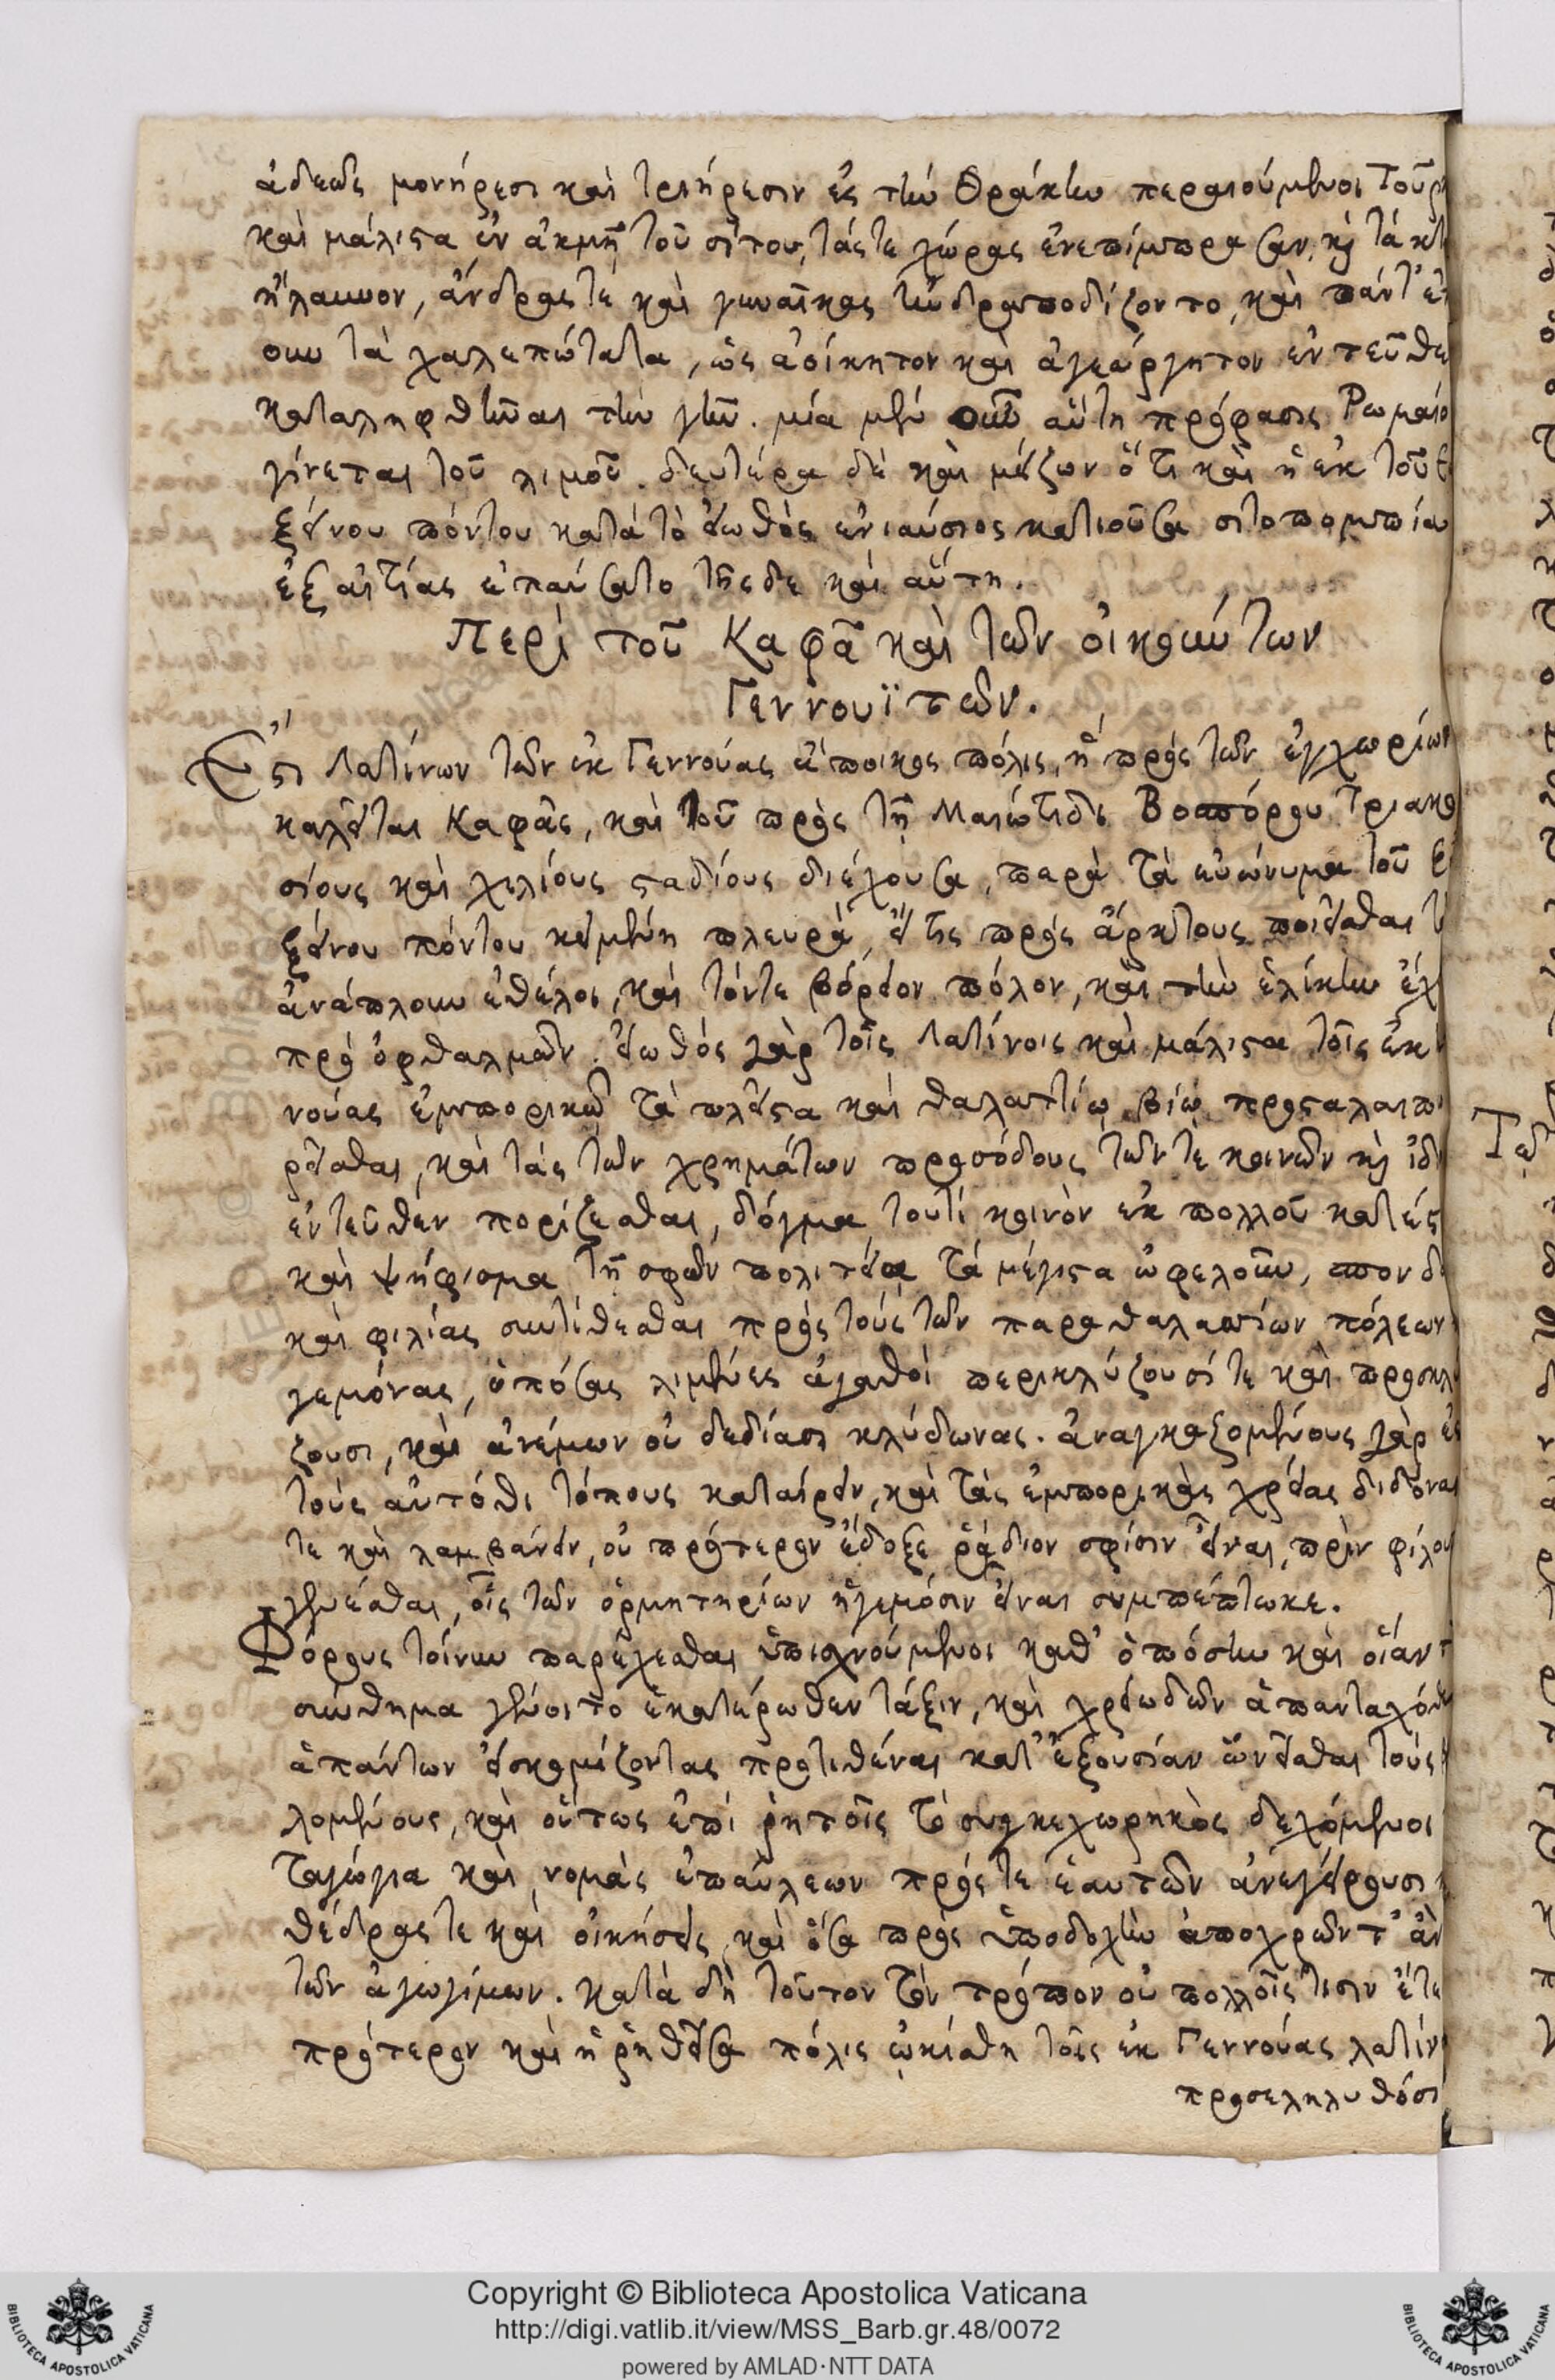 ἀδεῶς μονήρεσι καὶ τριήρεσιν ἐς τὴν Θράκην περαιούμενοι Τοῦρ
καὶ μάλιστα ἐν ἀκμῇ τοῦ σίτου, τάς τε χώρας ἐνεπίμπρασαν, καὶ τὰ κτ
ἤλαυνον, ἄνδρας τὲ καὶ γυναῖκας ἠνδραποδίζοντο, καὶ πάντ' ἐ
ουν τὰ χαλεπώτατα, ὡς ἀοίκητον καὶ ἀγεώργητον ἐντεῦθε
καταληφθῆναι τὴν γῆν. μία μὲν οὖν αὕτη πρόφασις Ῥωμαίο
γίνεται τοῦ λιμοῦ. δευτέρα δὲ καὶ μείζων ὅτι καὶ ἡ ἐκ τοῦ Ε
ξείνου πόντου κατὰ τὸ εἰωθὸς ἐνιαύσιος κατιοῦσα σιτοπομπία
ἐξ αἰτίας ἐπαύσατο τῆσδε καὶ αὕτη.
Περὶ τοῦ Καφᾶ καὶ τῶν οἰκούντων
Γεννουϊτῶν.
Ἔστι Λατίνων τῶν ἐκ Γεννούας ἄποικος πόλις, ἣ πρὸς τῶν ἐγχωρίων
καλεῖται Καφᾶς, καὶ τοῦ πρὸς τῇ Μαιώτιδι Βοσπόρου τριακο
σίους καὶ χιλίους σταδίους διέχουσα, παρὰ τὰ εὐώνυμα τοῦ Ε
ξείνου πόντου κειμένη πλευρά, εἴ τις πρὸς ἄρκτους ποιεῖσθαι τ
ἀνάπλουν ἐθέλοι, καὶ τόν τε βόρειον πόλον, καὶ τὴν ἑλίκην ἔχ
πρὸ ὀφθαλμῶν. εἰωθὸς γὰρ τοῖς Λατίνοις καὶ μάλιστα τοῖς ἐκ
νούας ἐμπορικῷ τὰ πλεῖστα καὶ θαλαττίῳ βίῳ προσταλαιπω
ρεῖσθαι, καὶ τὰς τῶν χρημάτων προσόδους τῶν τὲ κοινῶν καὶ ἰδί
ἐντεῦθεν πορίζεσθαι, δόγμα τουτὶ κοινὸν ἐκ πολλοῦ κατέστ
καὶ ψήφισμα τῇ σφῶν πολιτείᾳ τὰ μέγιστα ὠφελοῦν, σπονδὰ
καὶ φιλίας συντίθεσθαι πρὸς τοὺς τῶν παραθαλαττίων πόλεων
γεμόνας, ὁπόσας λιμένες ἀγαθοὶ περικλύζουσί τε καὶ προσκλύ
ζουσι, καὶ ἀνέμων οὐ δεδίασι κλύδωνας. ἀναγκαζομένους γὰρ ἐς
τοὺς αὐτόθι τόπους καταίρειν, καὶ τὰς ἐμπορικὰς χρείας διδόναι
τε καὶ λαμβάνειν, οὐ πρότερον ἔδοξε ῥᾴδιον σφίσιν εἶναι, πρὶν φίλου
γενέσθαι, οἷς τῶν ὁρμητηρίων ἡγεμόσιν εἶναι συμπέπτωκε.
Φόρους τοίνυν παρέχεσθαι ὑπισχνούμενοι καθ' ὁπόσην καὶ οἵαν τ
σύνθημα γένοιτο ἑκατέρωθεν τάξιν, καὶ χρειωδῶν ἁπανταχόθε
ἁπάντων εἰσκομίζοντας προτιθέναι κατ' ἐξουσίαν ὠνεῖσθαι τοὺς
λομένους, καὶ οὕτως ἐπὶ ῥητοῖς τὸ συγκεχωρηκὸς δεχόμενοι
ταγώγια καὶ νομὰς ἐπαύλεων πρός τε ἑαυτῶν ἀνεγείρουσι
θέδρας τε καὶ οἰκήσεις, καὶ ὅσα πρὸς ὑποδοχὴν ἀποχρῶντ' ἂν
τῶν ἀγωγίμων. κατὰ δὴ τοῦτον τὸν τρόπον οὐ πολλοῖς τισιν ἔτε
πρότερον καὶ ἡ ῥηθεῖσα πόλις ᾠκίσθη τοῖς ἐκ Γεννούας λατίν
προσεληλυθόσι
Copyright © Biblioteca Apostolica Vaticana
http://digi.vatlib.it/view/MSS_Barb.gr.48/0072
powered by AMLAD·NTT DATA
BIBLIOTECA APOSTOLICA VATICANA
BIBLIOTECA APOSTOLICA VATICANA